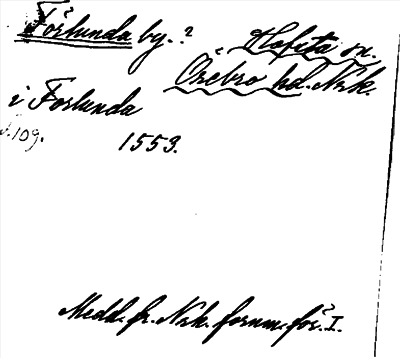 Förlunda by.? Hofsta sn.
Örebro hd. Nrk.
i Forlunda
s. 109.
1553.
Medd. fr. Nrk. fornm. för. I.